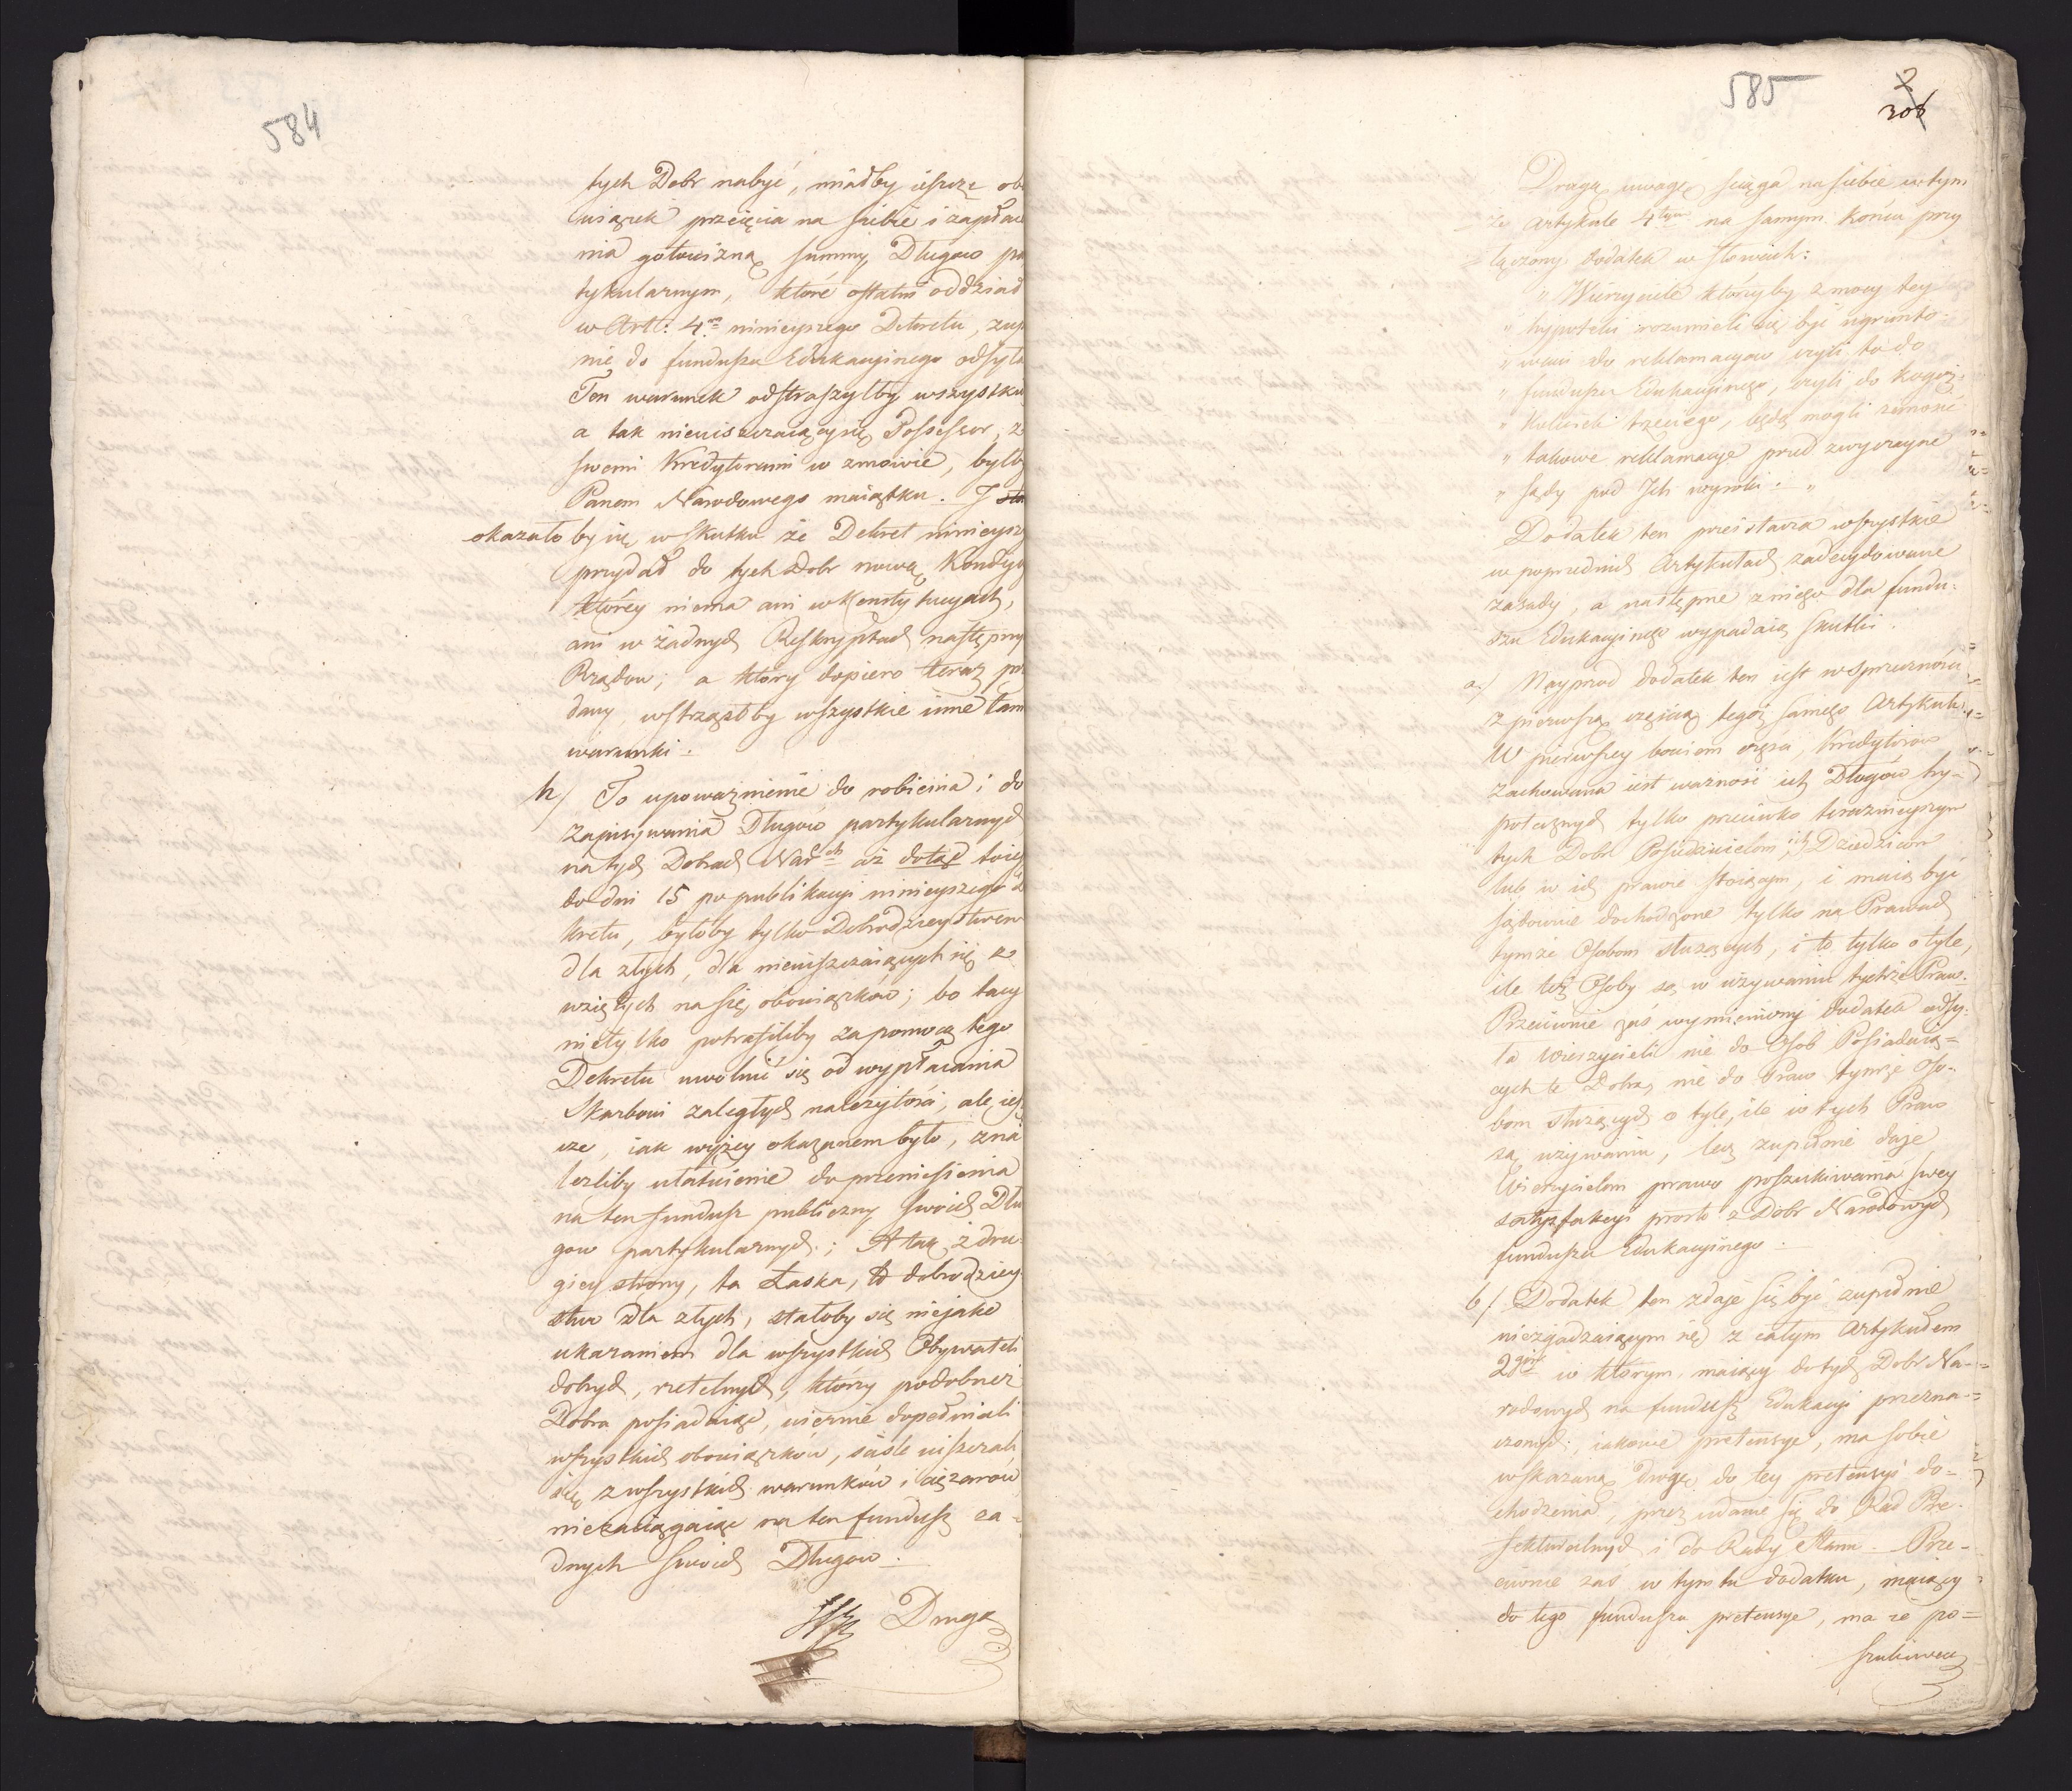 584
tych Dobr nabyć, miałby ieszcze obo
wiązek przeięcia na siebie i zapłace
nia gotowizną summy Długow pa
tykularnym, które ostatni oddział
w Art: 4m ninieyszego Dekretu, zup
nie do funduszu Edukacyinego odsyła
Ten warunek odstraszyłby wszystkich
a tak nieuiszczaiącysię Possessor, z
swemi Kredytorami w zmowie, byłby
Panem Narodowego maiątku. I
okazałoby się w skutku że Dekret ninieysz
przydał do tych Dobr nową Kondycy
którey niema ani w Konstytucyach,
ani w żadnych Reskryptach następny
Rządow; a który dopiero teraz po
dany, wstrząsłby wszystkie inne tam
warunki.
h/ To upoważnienie do robienia i do
zapisywania Długów partykularnych
na tych Dobrach Nar~ch aż dotąd toiest
do dni 15 po publikacyi ninieyszego de
kretu, byłoby tylko Dobrodzieystwem
dla złych, dla nieuiszczaiących się z
wziętych na się obowiązków; bo tacy
nietylko potrafiliby za pomocą tego
Dekretu uwolnić się od wypłacania
Skarbowi zaległych należytości, ale ies
cze, iak wyżey okazanem było, zna
lezliby ułatwienie do przeniesienia
na ten fundusz publiczny swoich Dłu
gow partykularnych; A tak z dru
giey strony, ta Łaska, to dobrodziey
stwo dla złych, stałoby się nieiako
ukaraniem dla wszystkich Obywateli
dobrych, rzetelnych, którzy podobnież
Dobra posiadaiąc, wiernie dopełniali
wszystkich obowiązków, ściśle uiszczali
się z wszystkich warunków i ciężarów
niezaciągaiąc na ten fundusz ża-
dnych swoich Długow.
Drugą
585
2
306
Drugą uwagę ściąga na siebie w tym
że Artykule 4tym na samym końcu przy
łączony dodatek w słowach:
" Wierzyciele którzyby z mocy tey
" hypoteki rozumieli się być ugrunto-
" wani do reklamacyow czyli to do
" funduszu Edukacyinego, czyli do kogoż-
" kolwiek trzeciego, będą mogli zanosić
" takowe reklamacye przed zwyczayne
" sądy pod Ich wyroki. "
Dodatek ten przeistacza wszystkie
w poprzednich Artykułach zadecydowane
zasady, a następne z niego dla fundu-
szu Edukacyinego wypadaią skutki.
a/ Nayprzod dodatek ten iest w sprzeczności
z pierwszą częścią tegoż samego Artykułu.
W pierwszey bowiem części, Kredytorow
zachowana iest ważność ich Długów hy-
potecznych tylko przeciwko teraźnieyszym
tych Dobr Posiedzicielom, ich Dziedzicom
lub w ich prawie stoiącym, i maią być
sądownie dochodzone tylko na Prawach
tymże Osobom służących, i to tylko o tyle,
ile też Osoby są w używaniu tychże Praw.
Przeciwnie zaś wymieniony dodatek odsy-
ła Wierzycieli nie do Osob Posiadaią-
cych te Dobra, nie do Praw tymże Oso-
bom służących o tyle, ile w tych Praw
są używaniu, lecz zupełnie daje
Wierzycielom prawo poszukiwania swey
satysfakcyi prosto z Dobr Narodowych
funduszu Edukacyinego.
b/. Dodatek ten zdaje się być zupełnie
niezgadzaiącym się z całym Artykułem
2gim w którym, maiący do tych Dobr Na-
rodowych na fundusz Edukacyi przezna-
czonych, iakowe pretensye, ma sobie
wskazaną drogę do tey pretensyi do-
chodzenia, przez udanie się do Rad Pre-
fekturalnych i do Rady Stanu. Prze-
ciwnie zaś w tym tu dodatku, maiący
do tego funduszu pretensye, ma ie po-
szukiwać